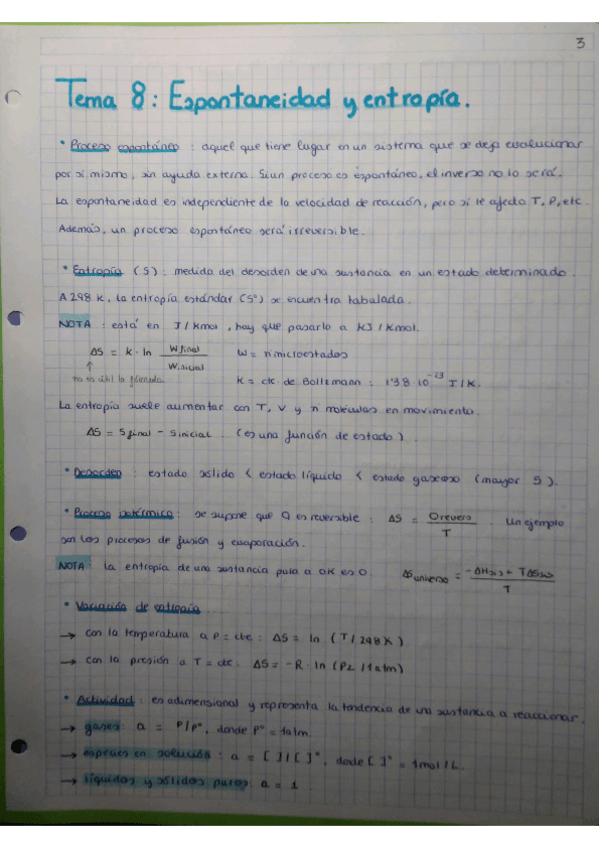 3
Tema 8: Espontaneidad y entropía.
• Proceso espontáneo : aquel que tiene lugar en un sistema que se deja evolucionar
por sí mismo, sin ayuda externa. Si un proceso es espontáneo, el inverso no lo será.
La espontaneidad es independiente de la velocidad de reacción, pero sí le afecta T, P, etc.
Además, un proceso espontáneo será irreversible.
• Entropía (S) : medida del desorden de una sustancia en un estado determinado.
A 298 K, la entropía estándar (S°) se encuentra tabulada.
NOTA : está en J/Kmol, hay que pasarlo a kJ/Kmol.
ΔS = k·ln W final / W inicial   W = nº microestados
↑ no es útil la fórmula   K = cte. de Boltzmann : 1'38·10⁻²³ J/K.
La entropía suele aumentar con T, V y nº moléculas en movimiento.
ΔS = S final - S inicial. (es una función de estado)
• Desorden : estado sólido < estado líquido < estado gaseoso (mayor S).
• Proceso isotérmico : se supone que Q es reversible : ΔS = Q revers / T . Un ejemplo
son los procesos de fusión y evaporación.
NOTA : la entropía de una sustancia pura a 0K es 0. ΔS universo = -ΔH sis + TΔS sis / T
• Variación de entropía
→ con la temperatura a P = cte : ΔS = ln (T/298K)
→ con la presión a T = cte. ΔS = -R·ln (P2/1atm)
• Actividad : es adimensional y representa la tendencia de una sustancia a reaccionar.
→ gases : a = P/P°, donde P° = 1atm.
→ especies en solución : a = [ ]/[ ]°, donde [ ]° = 1mol/L.
→ líquidos y sólidos puros : a = 1